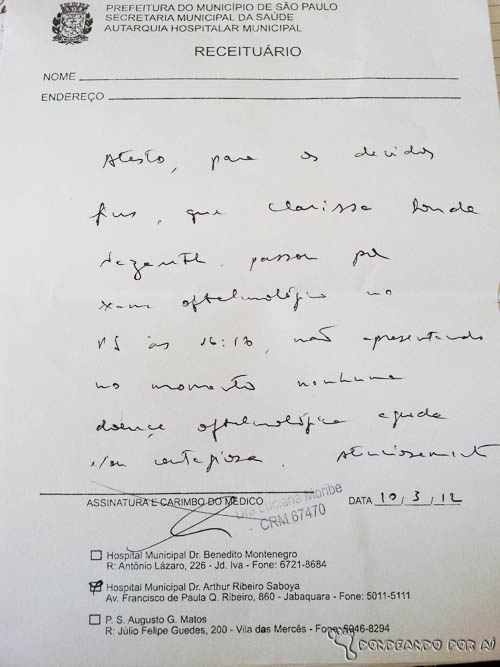 PREFEITURA DO MUNICÍPIO DE SÃO PAULO
SECRETARIA MUNICIPAL DA SAÚDE
AUTARQUIA HOSPITALAR MUNICIPAL
RECEITUÁRIO
NOME
ENDEREÇO
Atesto, para os devidos
fins, que Clarissa
passou por
exame oftalmológico no
PS às 16:10, não apresentando
no momento nenhuma
doença oftalmológica aguda
e/ou contagiosa. Atenciosamente
ASSINATURA E CARIMBO DO MÉDICO
Dra Luciana Moribe
CRM 67470
DATA 10, 3, 12
Hospital Municipal Dr. Benedito Montenegro
R: Antônio Lázaro, 226 - Jd. Iva - Fone: 6721-8684
Hospital Municipal Dr. Arthur Ribeiro Saboya
Av. Francisco de Paula Q. Ribeiro, 860 - Jabaquara - Fone: 5011-5111
P. S. Augusto G. Matos
R: Júlio Felipe Guedes, 200 - Vila das Mercês - Fone: 6946-8294
CONDEANDO POR AÍ